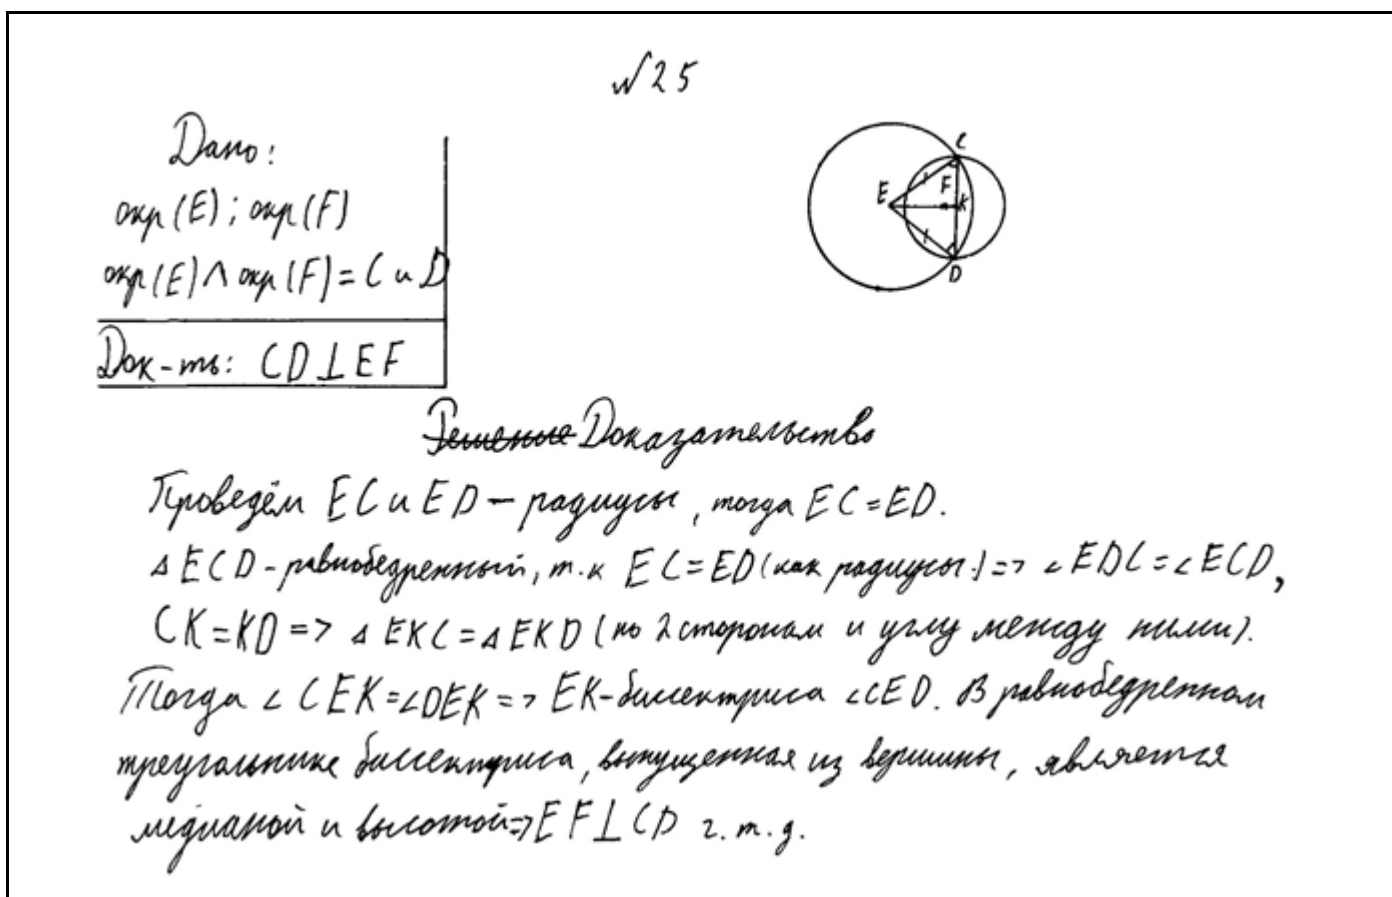 №25
Дано:
окр(E); окр(F)
окр(E)∧окр(F)=C и D
Док-ть: CD⊥EF
C
E
F
K
D
Решение Доказательство
Проведём EC и ED – радиусы, тогда EC=ED.
△ECD-равнобедренный, т.к EC=ED(как радиусы.)=> ∠EDC=∠ECD,
CK=KD => △EKC=△EKD (по 2 сторонам и углу между ними).
Тогда ∠CEK=∠DEK => EK-биссектриса ∠CED. В равнобедренном
треугольнике биссектриса, выпущенная из вершины, является
медианой и высотой=>EF⊥CD ч.т.д.